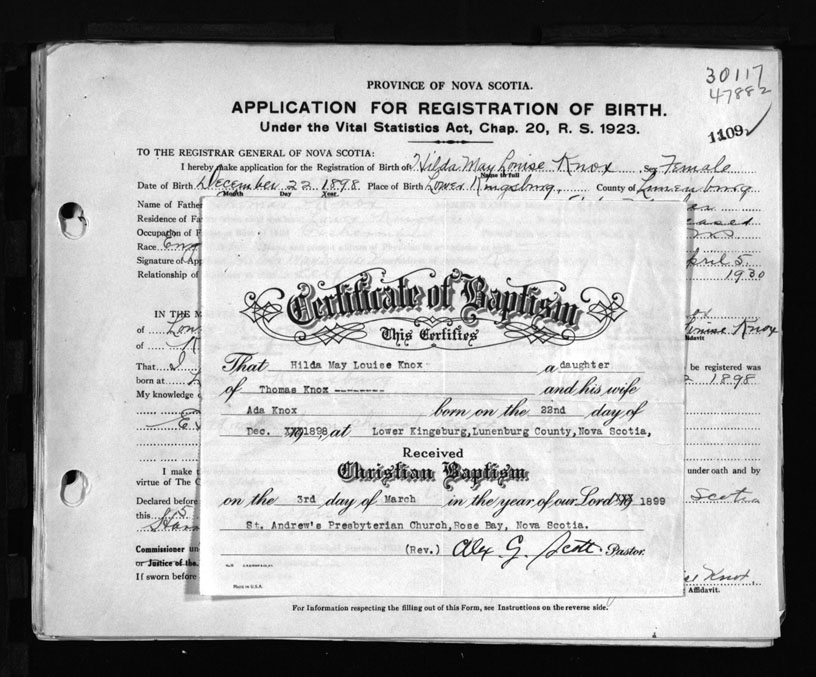 30117
47882
1109
PROVINCE OF NOVA SCOTIA.
APPLICATION FOR REGISTRATION OF BIRTH.
Under the Vital Statistics Act, Chap. 20, R. S. 1923.
TO THE REGISTRAR GENERAL OF NOVA SCOTIA:
I hereby make application for the Registration of Birth of Hilda May Louise Knox Sex Female
Name in full
Date of Birth December 22 1898 Place of Birth Lower Kingsburg County of Lunenburg
Month Day Year
Name of Father
Residence of Fa
Occupation of F
Race
Signature of Ap April 5
Relationship of 1930
IN THE M
of
of Louise Knox
That I be registered was
born at 1898
My knowledge
I make t under oath and by
virtue of The C
Declared before Scotia
this 5
Commissioner un
or Justice of the
If sworn before Knox
Affidavit.
Certificate of Baptism
This Certifies
That Hilda May Louise Knox a daughter
of Thomas Knox -------- and his wife
Ada Knox born on the 22nd day of
Dec. 1898, at Lower Kingsburg, Lunenburg County, Nova Scotia,
Received
Christian Baptism
on the 3rd day of March in the year of our Lord 1899
St. Andrew's Presbyterian Church, Rose Bay, Nova Scotia.
(Rev.) Alex G. Scott Pastor.
Made in U.S.A.
For Information respecting the filling out of this Form, see Instructions on the reverse side.